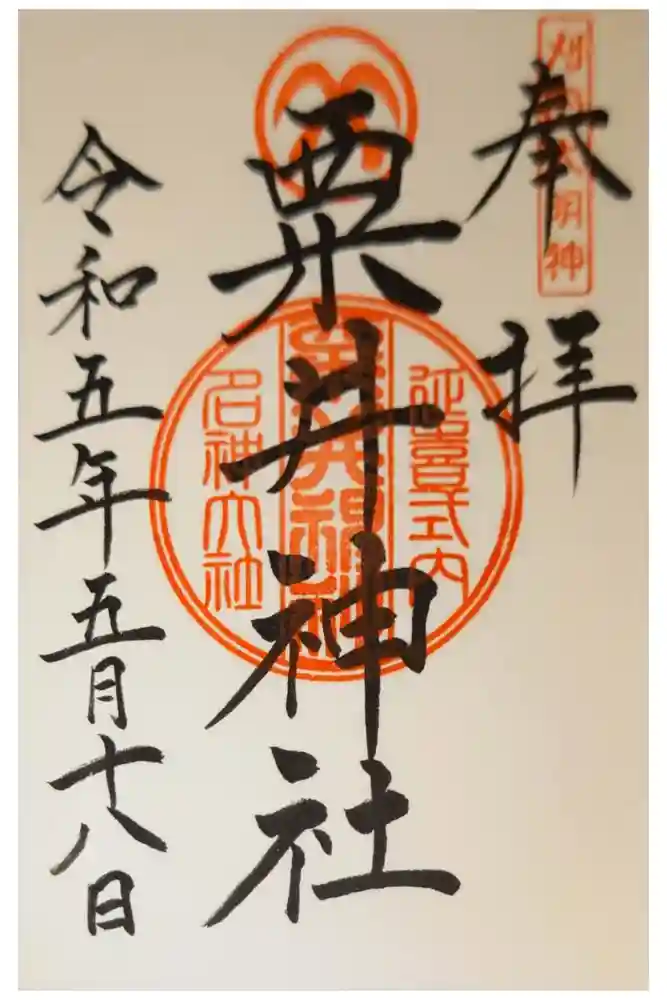 奉拝
刈田大明神
粟井神社
延喜式内
名神大社
令和五年五月十八日